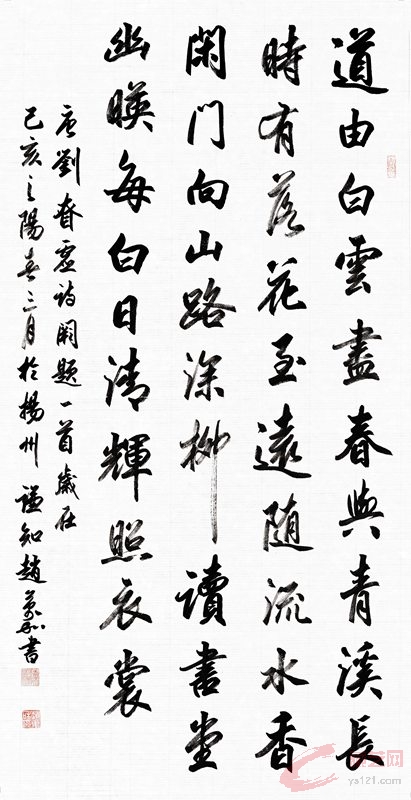 道由白雲盡春與青溪長
時有落花至遠随流水香
閑門向山路深柳讀書堂
幽暎每白日清輝照衣裳
唐劉眘虛詩闕題一首歲在
己亥之陽春三月於揚州謹知趙書
ys121.com